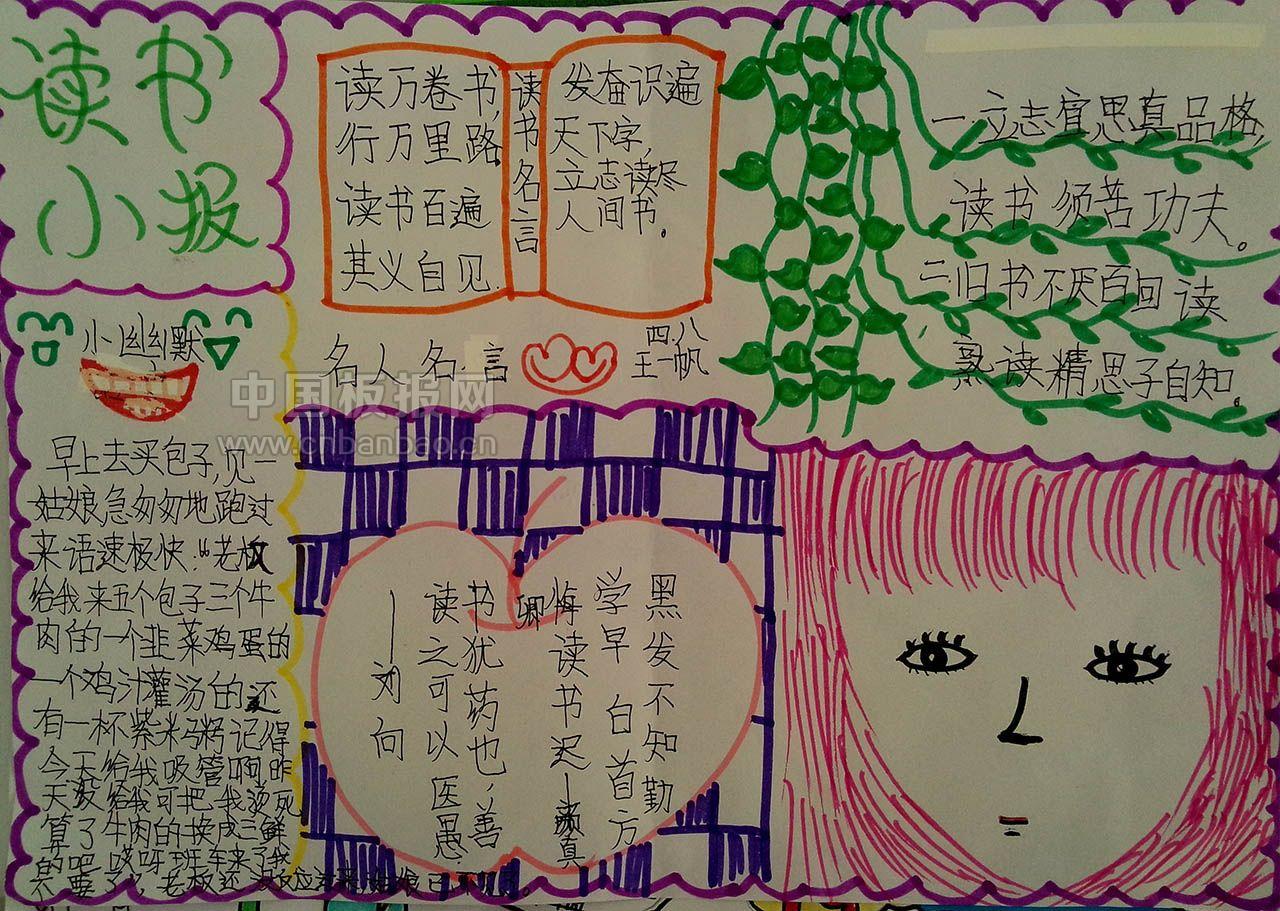 读书
小报
读万卷书,
行万里路
读书百遍
其义自见.
读书名言
发奋识遍
天下字,
立志读尽
人间书。
一.立志宜思真品格,
读书须苦功夫。
二.旧书不厌百回读
熟读精思子自知.
名人名言
四.八
王一帆
小幽默
中国板报网
www.cnbanbao.cn
早上去买包子,见一
姑娘急匆匆地跑过
来语速极快:“老板
给我来五个包子三个牛
肉的一个韭菜鸡蛋的
一个鸡汁灌汤的还
有一杯紫米粥记得
今天给我吸管啊昨
天没给我可把我烫死
算了牛肉的换成三鲜
的吧 哎呀班车来了我
不要了”, 老板还没反应过来姑娘已不见了.
黑发不知勤
学早 白首方
悔读书迟—颜真
卿
书犹药也,善
读之可以医愚
——刘向